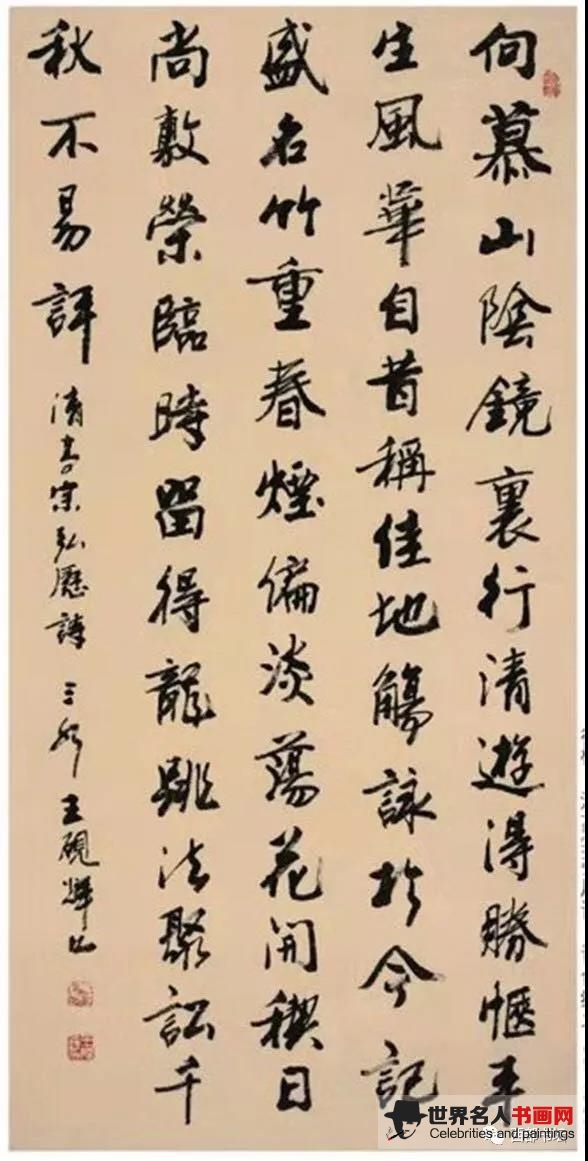 向慕山陰鏡裏行清遊得勝愜平
生風華自昔稱佳地觴詠於今記
盛名竹重春煙偏淡蕩花開禊日
尚敷榮臨時留得龍跳法聚訟千
秋不易評
清高宗弘曆詩 王硯輝書
世界名人书画网
Celebrities and paintings